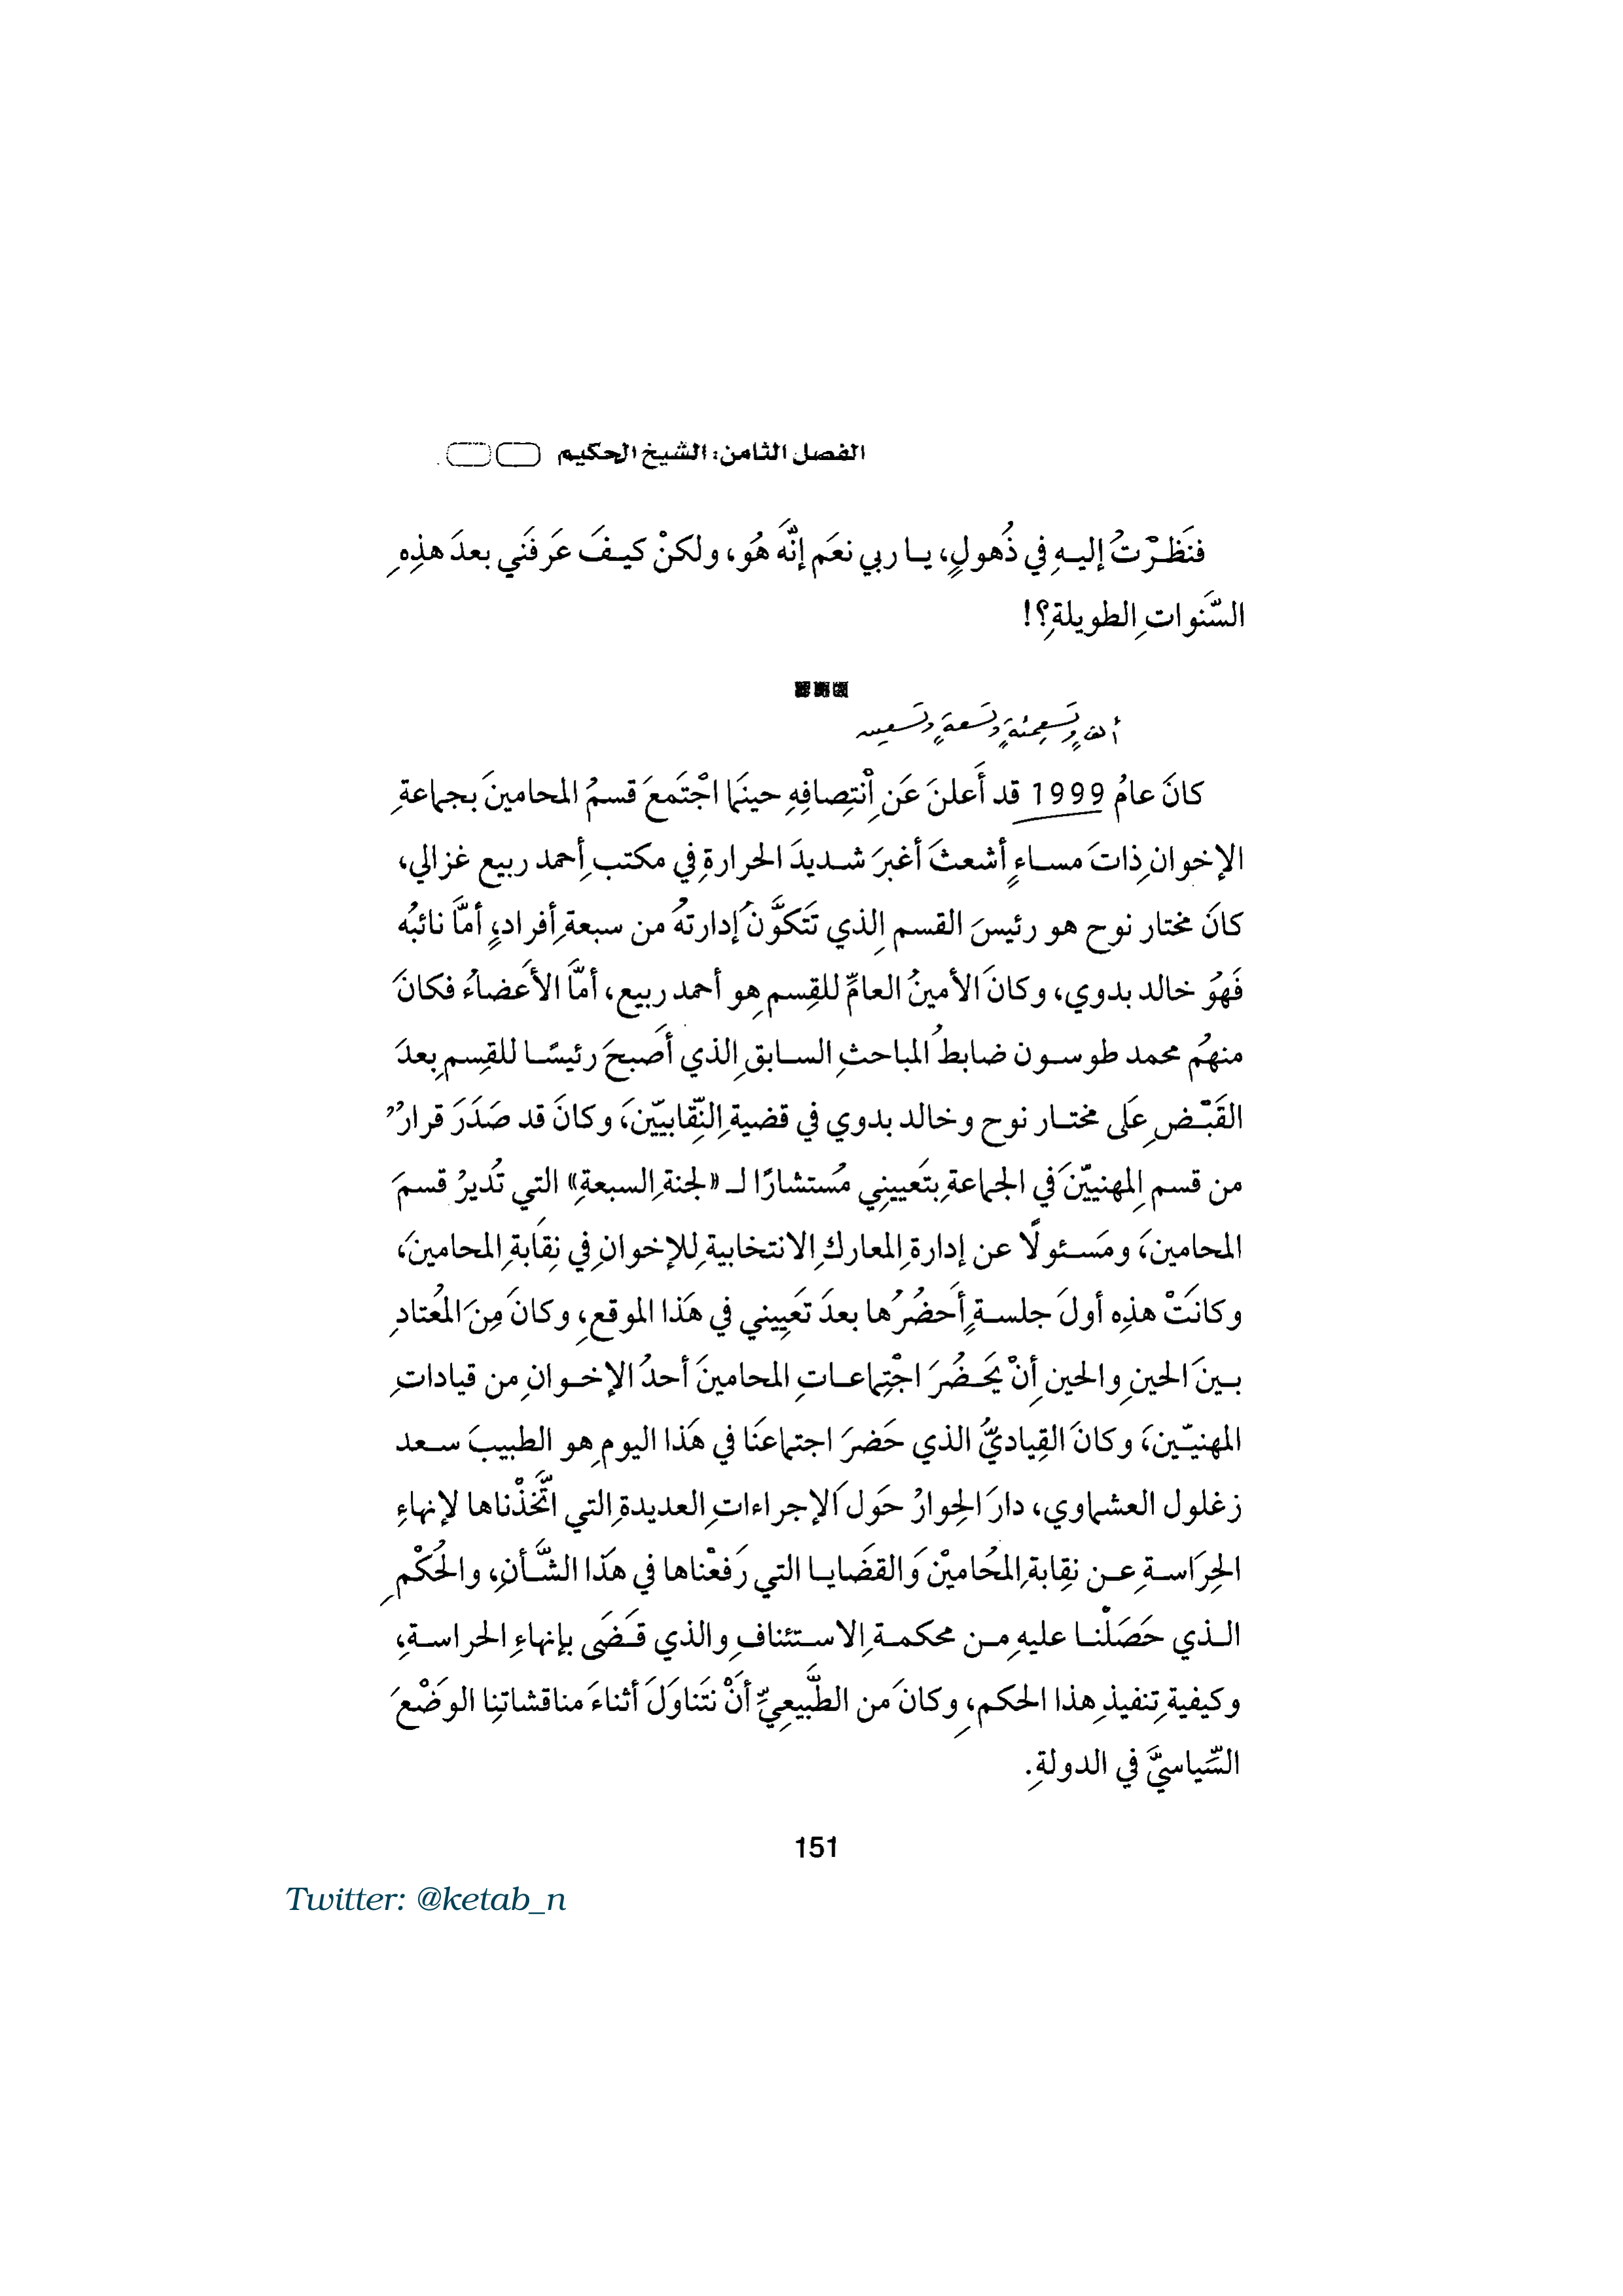 الفصل الثامن: الشيخ الحكيم
فنَظَرْتُ إليهِ في ذُهولٍ، يا ربي نعَم إنَّه هُو، ولكنْ كيفَ عَرفَني بعدَ هذِهِ
السَّنواتِ الطويلةِ؟!
ألف وتسعمئة وتسعة وتسعين
كانَ عامُ 1999 قد أَعلنَ عَنِ اْنتِصافِهِ حينَما اجْتَمعَ قسمُ المحامينَ بجماعةِ
الإخوانِ ذاتَ مساءٍ أشعثَ أغبرَ شديدَ الحرارةِ في مكتبِ أحمد ربيع غزالي،
كانَ مختار نوح هو رئيسَ القسمِ الذي تَتكوَّنُ إدارتهُ من سبعةِ أفرادٍ، أمَّا نائبُه
فَهُوَ خالد بدوي، وكانَ الأمينُ العامِّ للقِسمِ هو أحمد ربيع، أمَّا الأَعضاءُ فكانَ
منهُم محمد طوسون ضابطُ المباحثِ السابقِ الذي أَصبحَ رئيسًا للقِسمِ بعدَ
القَبْضِ عَلى مختار نوح وخالد بدوي في قضيةِ النِّقابيّينَ، وكانَ قد صَدَرَ قرارٌ
من قسمِ المهنيّينَ في الجماعةِ بتَعيينِي مُستشارًا لـ «لجنةِ السبعةِ» التي تُديرُ قسمَ
المحامينَ، ومَسئولًا عن إدارةِ المعاركِ الانتخابيةِ للإخوانِ في نِقَابةِ المحامينَ،
وكانَتْ هذِه أولَ جلسةٍ أَحضُرُها بعدَ تَعيِيني في هَذا الموقعِ، وكانَ مِنَ المُعتادِ
بينَ الحينِ والحينِ أنْ يَحضُرَ اجْتِماعاتِ المحامينَ أحدُ الإخوانِ من قياداتِ
المهنيّينَ، وكانَ القِياديُّ الذي حَضرَ اجتماعنَا في هَذا اليومِ هو الطبيبَ سعد
زغلول العشماوي، دارَ الحِوارُ حَول الإجراءاتِ العديدةِ التي اتَّخذْناها لإنهاءِ
الحِرَاسةِ عن نقِابةِ المحُامينْ وَالقضَايا التي رَفعْناها في هَذا الشَّأنِ، والحُكْمِ
الذي حَصَلْنا عليهِ من محكمةِ الاستئنافِ والذي قَضَى بإنهاءِ الحراسةِ،
وكيفيةِ تنفيذِ هذا الحكمِ، وكانَ من الطَّبيعِيِّ أنْ نتَناوَلَ أثناءَ مناقشاتِنا الوَضْعَ
السِّياسيَّ في الدولةِ.
151
Twitter: @ketab_n